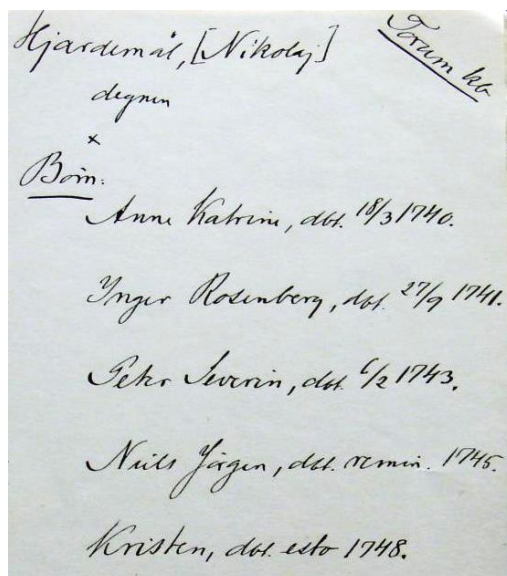 Hjardemål, [Nikolaj]
Torum kb
degnen
x
Börn:
Anne Katrine, dbt. 18/3 1740.
Inger Rosenberg, dbt. 27/9 1741.
Peter Severin, dbt. 6/2 1743.
Niels Jörgen, dbt. remin. 1745.
Kristen, dbt. esto 1748.